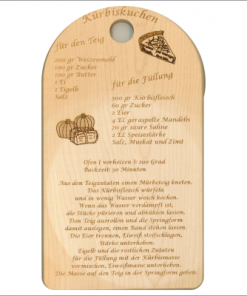 Kürbiskuchen
für den Teig
200 gr Weizenmehl
100 gr Zucker
100 gr Butter
1 Ei
1 Eigelb
Salz
für die Füllung
500 gr Kürbisfleisch
60 gr Zucker
2 Eier
4 El geraspelte Mandeln
20 gr saure Sahne
2 El Speisestärke
Salz, Muskat und Zimt
Ofen vorheizen 200 Grad
Backzeit 30 Minuten
Aus den Teigzutaten einen Mürbeteig kneten.
Das Kürbisfleisch würfeln
und in wenig Wasser weich kochen.
Wenn das Wasser verdampft ist,
die Stücke pürieren und abkühlen lassen.
Den Teig ausrollen und die Springform
damit auslegen, einen Rand stehen lassen
Die Eier trennen, Eiweiß steifschlagen,
Stärke unterheben.
Eigelb und die restlichen Zutaten
für die Füllung mit der Kürbismasse
vermischen, Eiweißmasse unterheben.
Die Masse auf den Teig in der Springform geben.